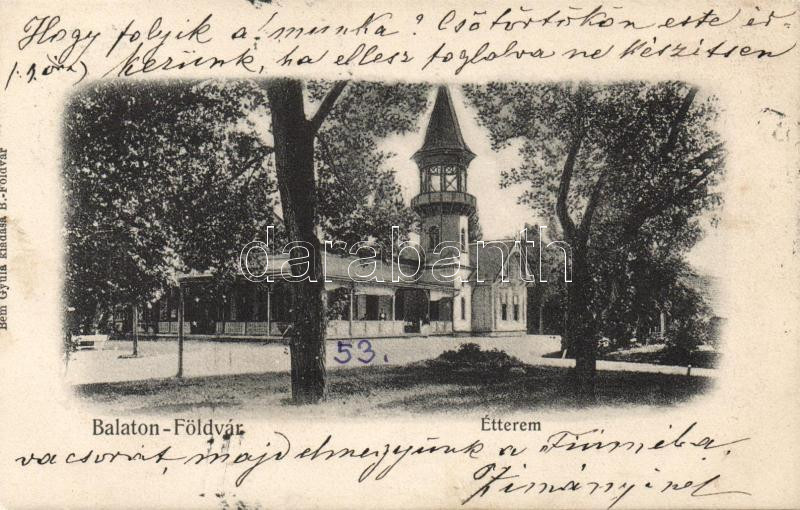 Hogy folyik a munka? Csötörtökön este ér-
kezünk, ha ellesz foglalva ne készítsen
Bém Gyula kiadása B.-Földvár
darabanth
53.
Balaton-Földvár
Étterem
vacsorát, majd elmegyünk a Fiuméba,